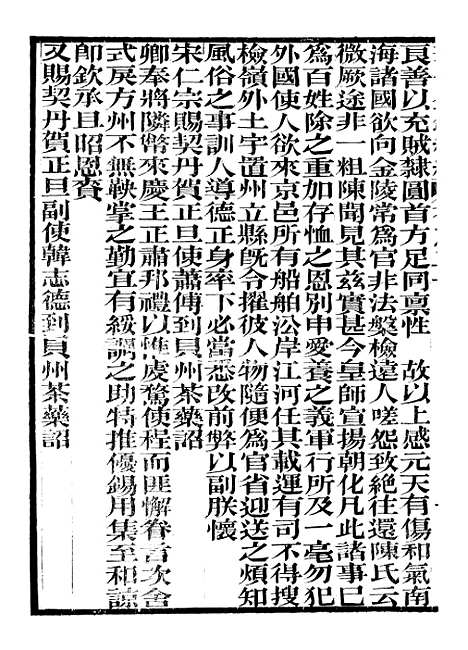 良善以充賊隸圓首方足同禀性　故以上感元天有傷和氣南
海諸國欲向金陵常為官非法檢遠人嗟怨致絶往還陳氏云
微厥途非一粗陳聞見其兹實甚今皇師宣揚朝化凡此諸事已
為百姓除之重加存恤之恩别申愛養之義軍行所及一毫勿犯
外國使人欲來京邑所有船舶沿岸江河任其載運有司不得搜
檢嶺外土宇置州立縣旣令擢彼人物隨便為官省迎送之煩知
風俗之事訓人導德正身率下必當悉改前弊以副朕懷
宋仁宗賜契丹賀正旦使蕭傅到貝州茶藥詔
卿奉將隣幣來慶王正肅邦禮以惟虔驚使程而匪懈眷言次舍
式戾方州不無鞅掌之勤宜有綏調之助特推優錫用集至和諒
卽欽承且昭恩賚
又賜契丹賀正旦副使韓志德到貝州茶藥詔